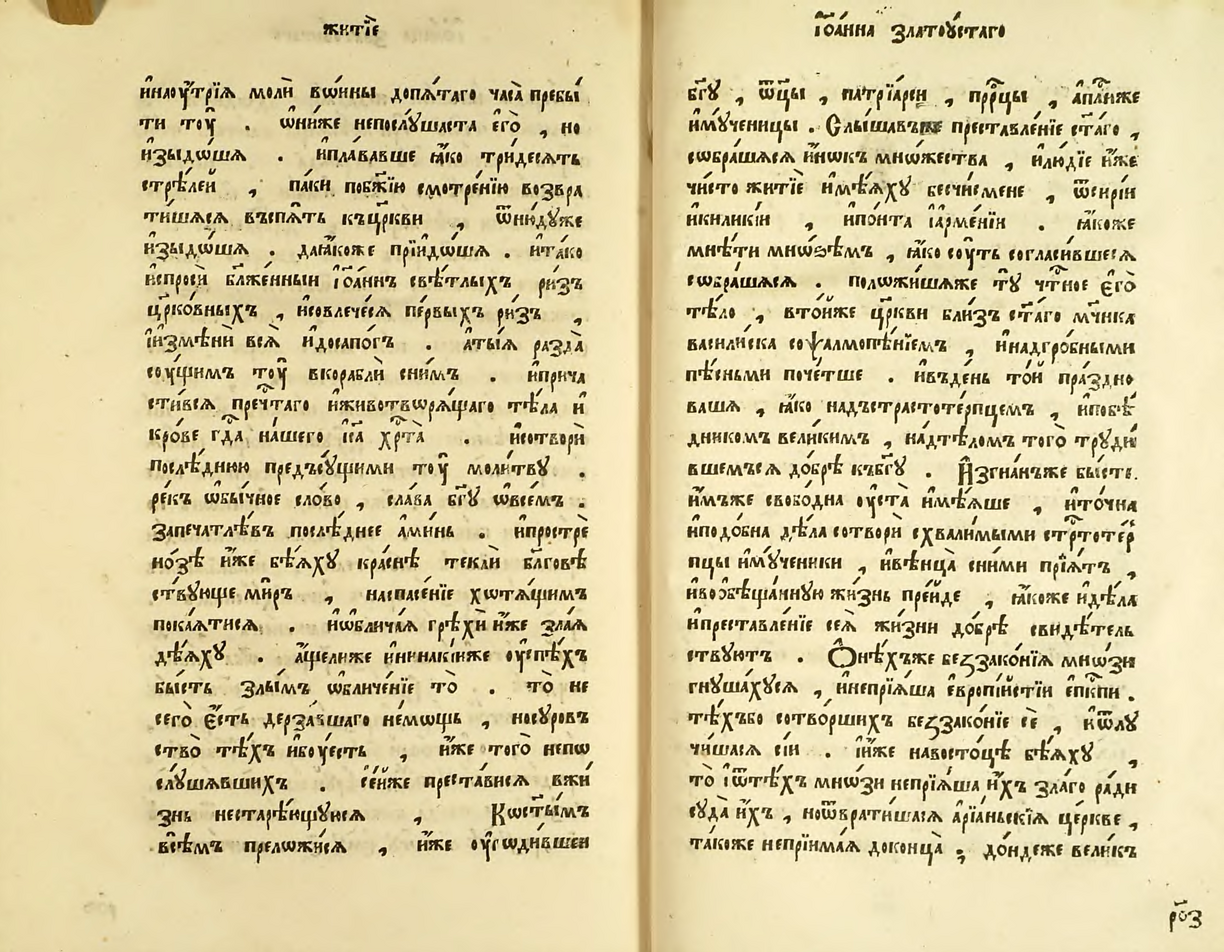 житїе
инаоутрїꙗ моли вѡины допѧтаго часа пребы
ти тоу . ѡниже непослушаста его , но
изыдѡшѧ . иплававше ꙗко тридесѧть
стрѣлеи , паки побж҃їю смотренїю возвра
тишѧсѧ въспѧть къцр҃кви , ѿнюдуже
изыдѡшѧ . даꙗкоже прїидѡшѧ . итако
испроси бл҃женныи їѡ҃аннъ свѣтлыхъ ризъ
цр҃ковныхъ , исовлечесѧ первыхъ ризъ ,
їизмѣни всѧ идосапогъ . атыѧ разда
соущимъ тоу вкорабли снимъ . иприча
стивсѧ пречⷭ҇таго иживотвѡрѧщаго тѣла и
крове гд҃а нашего іс҃а хрⷭ҇та . исотвори
послѣднюю предъсущими тоу молитву .
рекъ ѡбычное слово , слава бг҃у ѡвсемъ .
запечатлѣвъ послѣднее аминь . ипростре
нозѣ иже бѣѧху краснѣ текли бл҃говѣ
ствующе миръ , наспасенїе хѡтѧщимъ
покаѧтисѧ . иѡбличаѧ грѣхи иже злаѧ
дѣѧху . ащелиже ининакиже оуспѣхъ
бысть злымъ ѡбличенїе то . то не
сего есть дерзавшаго немощь , носуровъ
ство тѣхъ ибоуесть , иже того непѡ
слушѧвшихъ . сеиже престависѧ вжи
знь нестарѣющуюсѧ , Кѡст҃ымъ
всѣмъ прелѡжисѧ , иже оугѡдившеи
їѡ҃анна златоустаго
бг҃у , ѿцы , патрїарси , прⷪ҇рцы , апⷭ҇лиже
имученицы . Слышавъже преставленїе ст҃аго ,
сѡбрашѧсѧ инѡкъ мнѡжества , илюдїе иже
чисто житїе имѣѧху бесчисмене , ѿсирїи
икиликїи , ипонта їарменїи . ꙗкоже
мнѣти мнѡѕѣмъ , ꙗко соуть согласившеесѧ
сѡбрашѧсѧ . полѡжишѧже ту чⷭ҇тное его
тѣло , втоиже цр҃кви близъ ст҃аго мч҃нка
василиска соѱалмопѣнїемъ , инадгробными
пѣсньми почетше . ивъдень той праздно
вашѧ , ꙗко надъстрастотерпцемъ , ипобѣ
дникомъ великимъ , надтѣломъ того труди
вшемъсѧ добрѣ къбг҃у . Изгнанъже бысте.
имъже свободна оуста имѣѧше , иточна
иподобна дѣла сотвори схвалимыми стрⷭ҇тотер
пцы имученики , ивѣнца сними прїѧтъ ,
ивообѣщанную жизнь преиде , ꙗкоже идѣла
ипреставленїе сеѧ жизни добрѣ свидѣтель
ствуютъ . Онѣхъже беззаконїѧ мнѡзи
гнушахусѧ , инепрїѧша европїистїи епⷭ҇кпи .
тѣхъбо сотворшихъ беззаконїе се , иѿлу
чишасѧ сїи . їиже навостоцѣ бѣѧху ,
то їѿтѣхъ мнѡзи непрїѧша ихъ злаго ради
суда ихъ , ноѿвратишасѧ арїаньскїѧ церкве ,
такоже непрїимаѧ доконца ; дондеже великъ
роз